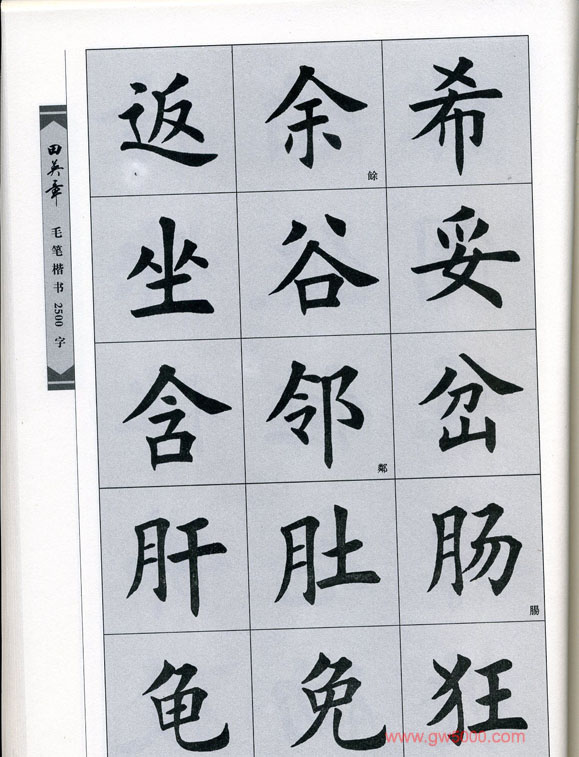 田英章 毛笔楷书2500字
返 余 希
餘
坐 谷 妥
含 邻 岔
鄰
肝 肚 肠
腸
龟 免 狂
www.gw8000.com